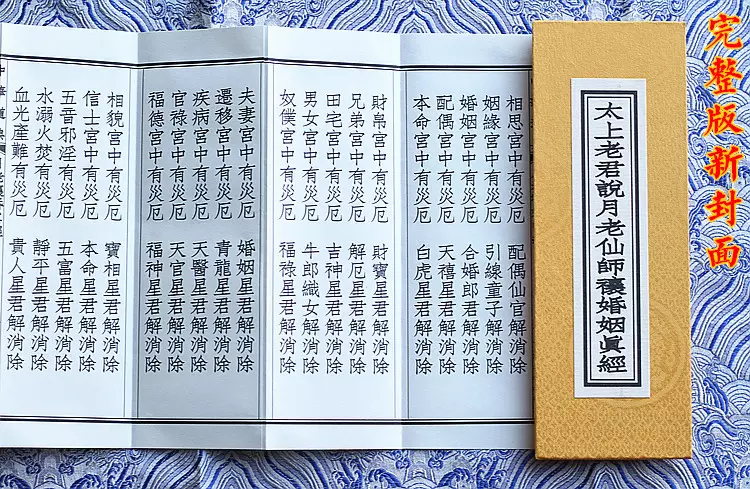 完整版新封面
太上老君說月老仙師禳婚姻眞經
相思宮中有災厄 配偶仙官解消除
姻緣宮中有災厄 引線童子解消除
婚姻宮中有災厄 合婚郎君解消除
配偶宮中有災厄 天禧星君解消除
本命宮中有災厄 白虎星君解消除
財帛宮中有災厄 財寶星君解消除
兄弟宮中有災厄 解厄星君解消除
田宅宮中有災厄 吉神星君解消除
男女宮中有災厄 牛郎織女解消除
奴僕宮中有災厄 福祿星君解消除
夫妻宮中有災厄 婚姻星君解消除
遷移宮中有災厄 青龍星君解消除
疾病宮中有災厄 天醫星君解消除
官祿宮中有災厄 天官星君解消除
福德宮中有災厄 福神星君解消除
相貌宮中有災厄 寶相星君解消除
信士宮中有災厄 本命星君解消除
五音邪淫有災厄 五富星君解消除
水溺火焚有災厄 靜平星君解消除
血光產難有災厄 貴人星君解消除